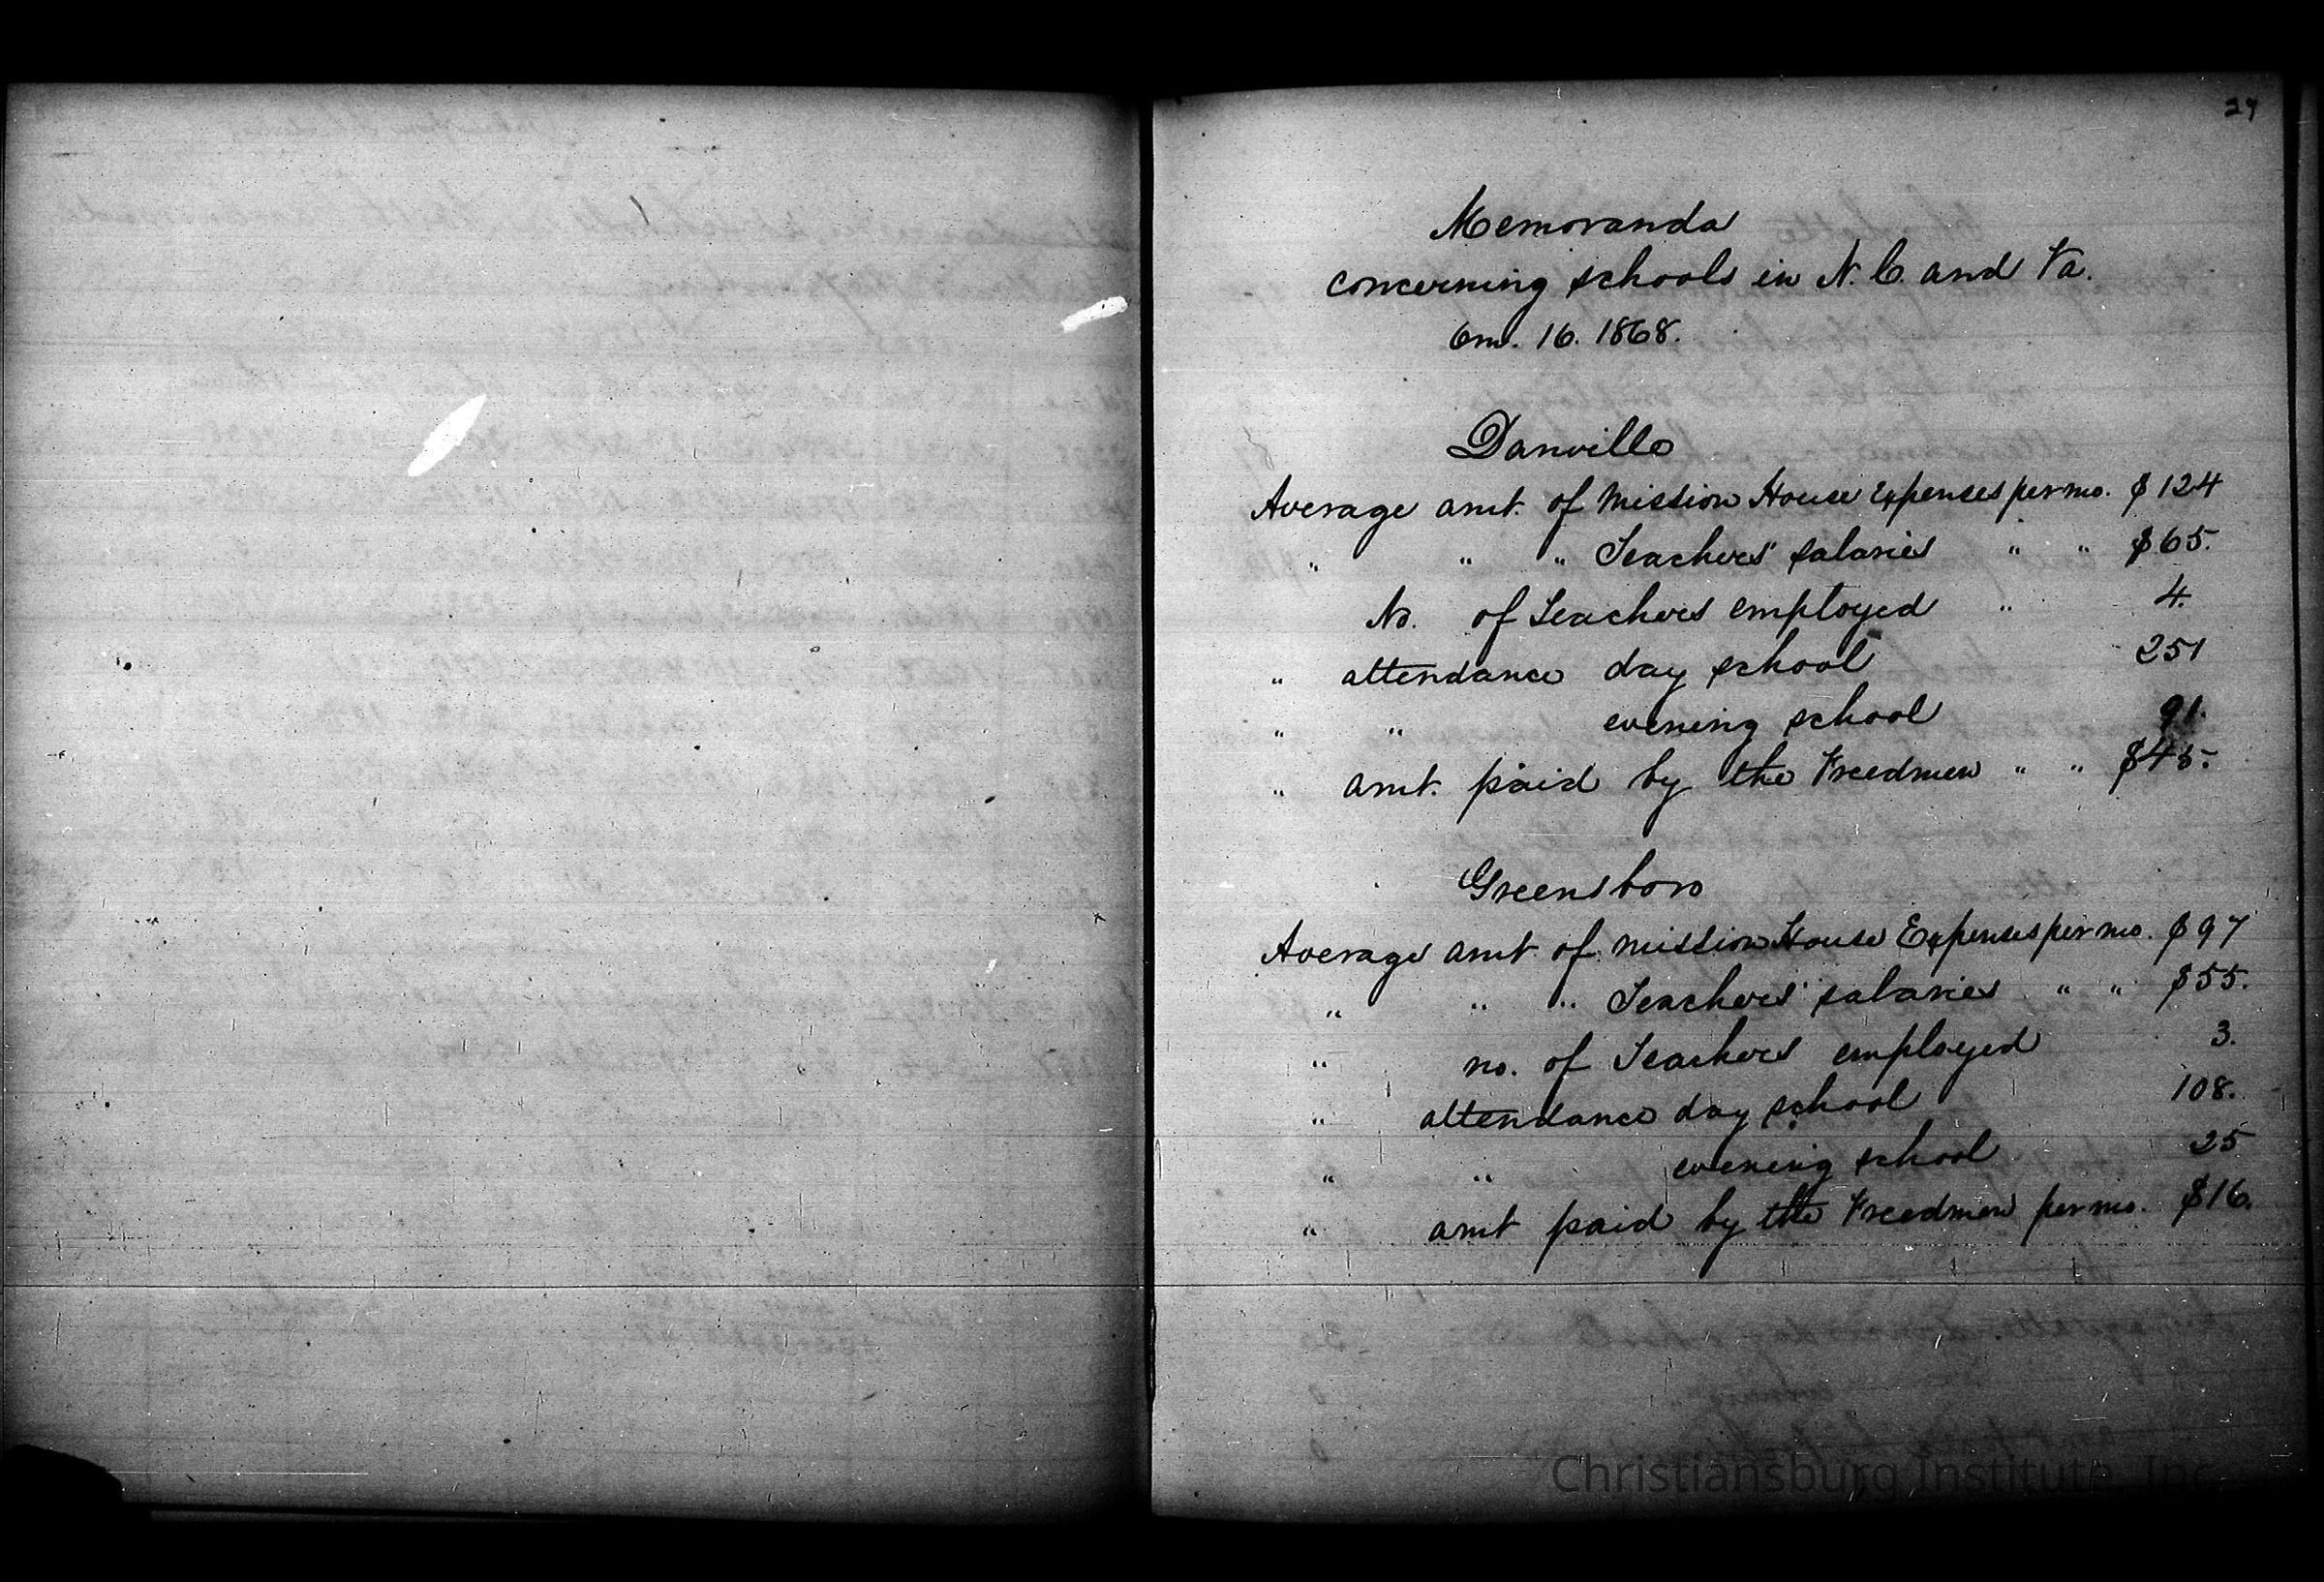 Memoranda
concerning schools in N. C. and Va.
6m. 16. 1868.
Danville
Average amt. of Mission House Expenses per mo. $124
" " " Teachers' salaries " " $65.
No. of Teachers employed " 4.
" attendance day school 251
" " evening school 91.
" amt. paid by the Freedmen " " $45.
Greensboro
Average amt of mission House Expenses per mo. $97
" " " Teachers' salaries " " $55.
" no. of Teachers employed 3.
" attendance day school 108.
" " evening school 25
" amt paid by the Freedmen per mo. $16.
Christiansburg Institute, Inc.